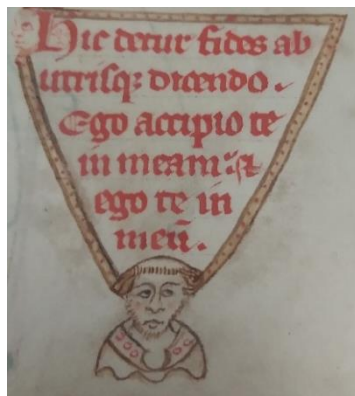 Hic detur fides ab
utrisq; dicendo.
Ego accipio te
in meam: ⁊
ego te in
meū.